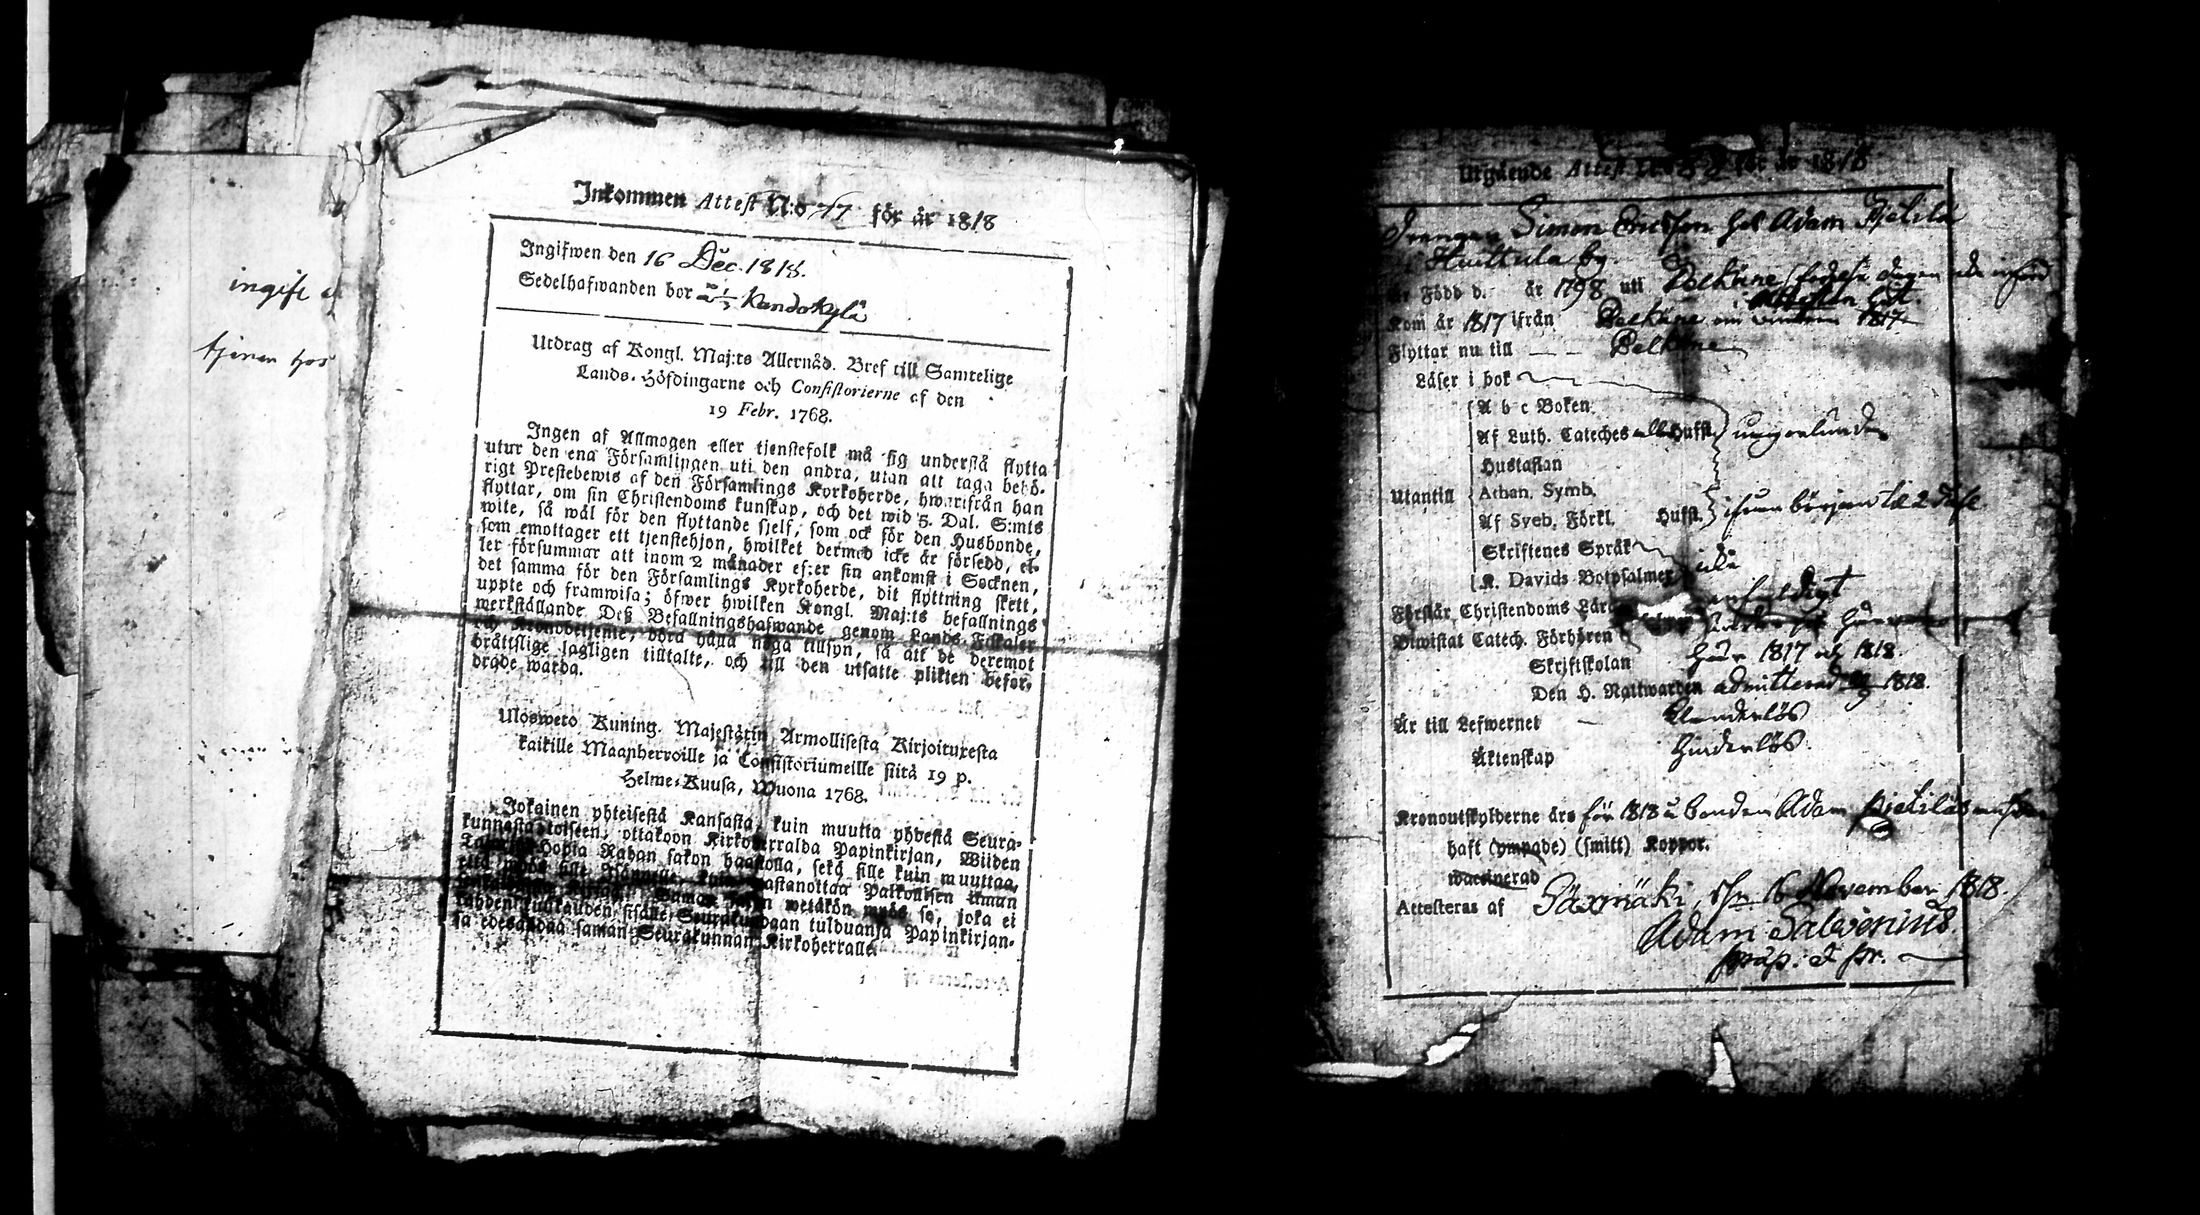 ingift
tjenar hos
Inkommen Attest N:o 77 för år 1818
Ingifwen den 16 Dec. 1818.
Sedelhafwanden bor Kandokylä
Utdrag af Kongl. Maj:ts Allernåd. Bref till Samtelige
Lands-Höfdingarne och Consistorierne af den
19 Febr. 1768.
Ingen af Allmogen eller tjenstefolk må sig understå flytta
utur den ena Församlingen uti den andra, utan att taga behö-
rigt Prestebewis af den Församlings Kyrkoherde, hwarifrån han
flyttar, om sin Christendoms kunskap, och det wid 5. Dal. S:mts
wite, så wäl för den flyttande sjelf, som ock för den Husbonde,
som emottager ett tjenstehjon, hwilket dermed icke är försedd, el-
ler försummar att inom 2 månader efter sin ankomst i Socknen,
det samma för den Församlings Kyrkoherde, dit flyttning skett,
uppte och framwisa; öfwer hwilken Kongl. Maj:ts befallnings
werkställande Deß Befallningshafwande genom Lands-Fiskaler
och Kronobetjente, böra hålla noga tillsyn, så att de deremot
bråttslige lagligen tilltalte, och till den utsatte plikten befor-
drade warda.
Ulosweto Kuning. Majestätin Armollisesta Kirjoituxesta
kaikille Maanherroille ja Consistoriumeille siitä 19 p.
Helme-Kuusa, Wuona 1768.
Jokainen yhteisestä Kansasta, kuin muutta yhdestä Seura-
kunnasta toiseen, ottakoon Kirkoherralda Papinkirjan, Wiiden
Talarin Hopia Rahan sakon haastolla, sekä sille kuin muuttaa,
että myös sille Isännelle, kuin wastanottaa Palkollisen ilman
wetäkön myös se, joka ei
kahden kuukauden sisälle Seurakundaan tulduansa Papinkirjan-
sa edesandaa saman Seurakunnan Kirkoherralle
Utgående Attest N:o 82 för år 1818
Drengen Simon Ericsson hos Adam Pjetilä
Huittula by.
Är Född d. år 1798 uti Pelkäne
Kom år 1817 ifrån Pelkäne 1817
Flyttar nu till Pelkäne
Läser i bok
A b c Boken
Af Luth. Cateches Hufst.
Hustaflan
Utantill Athan. Symb.
Af Sveb. Förkl. Hufst. ifrån början til 2
Skriftenes Språk
K. Davids Botpsalmer
Förstår Christendoms Lära enfaldigt
Biwistat Catech. Förhören
Skriftskolan här 1817 och 1818.
Den H. Nattwarden admitterad 1818.
Är till Lefwernet Klanderlös
Äktenskap hinderlös.
Kronoutskylderne äro för 1818 å bonden Adam Pjetiläs
haft (ympade) (smitt) Koppor.
waccinerad
Attesteras af Säxmäki, 16 November 1818.
Adam Salvenius